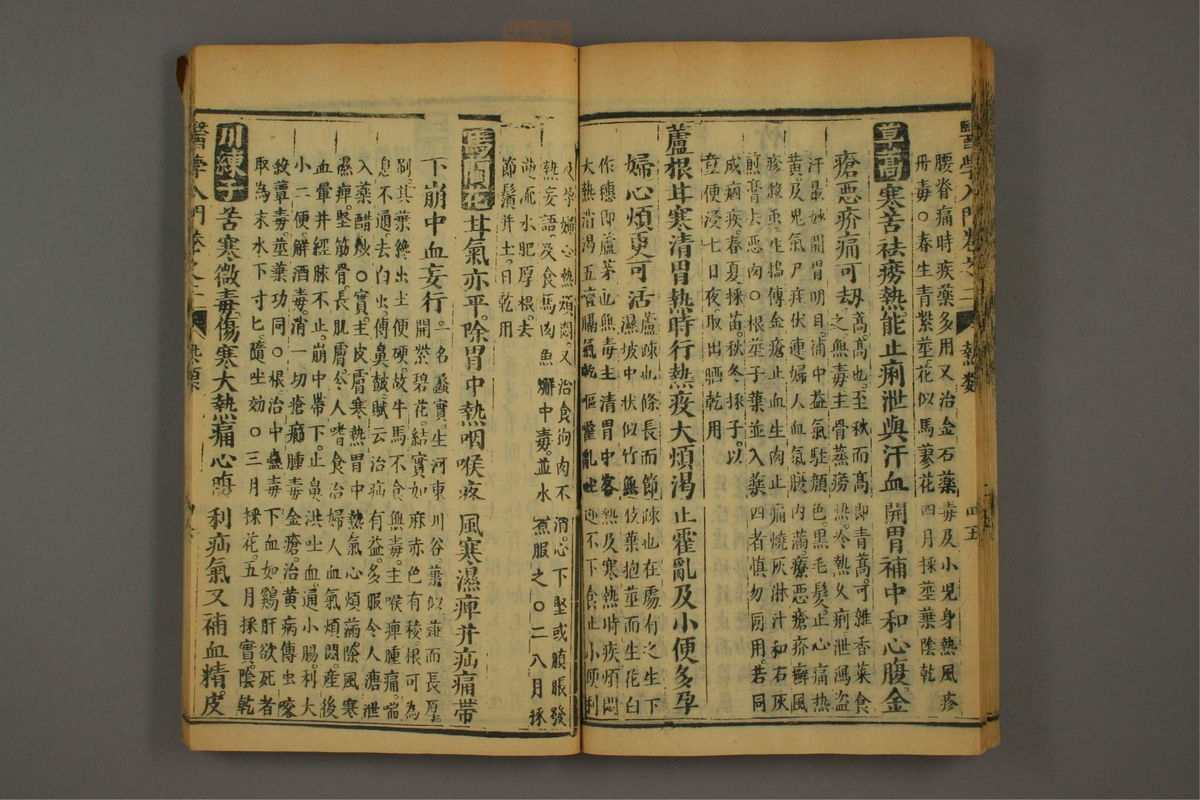 醫學入門卷之二 熱類 四五
腰脊痛時疾藥多用又治金石藥毒及小兒身熱風疹
丹毒○春生青紫莖花似馬蓼花四月採莖葉陰乾
草蒿寒苦祛癆熱能止痢泄與汗血開胃補中和心腹金
瘡惡疥痛可劫
蒿高也至秋而高即青蒿可雜香菜食
之無毒主骨蒸癆熱冷熱久痢泄瀉盜
汗最妙開胃明目補中益氣駐顏色黑毛髮止心痛熱
黃及鬼氣尸疰伏連婦人血氣腹內滿療惡瘡疥癬風
疹殺虱生搗傅金瘡止血生肉止痛燒灰淋汁和石灰
煎膏去惡肉○根莖子葉並入藥四者慎勿同用若同
成痼疾春夏採苗秋冬採子以
童便浸七日夜取出晒乾用
蘆根甘寒清胃熱時行熱疫大煩渴止霍亂及小便多孕
婦心煩更可活
蘆疎也條長而節疎也在處有之生下
濕坡中狀似竹無枝葉抱莖而生花白
作穗即蘆茅也無毒主清胃中客熱及寒熱時疾煩悶
大熱消渴五噎膈氣乾嘔霍亂吐逆不下食止小便利
及孕婦心熱煩悶又治食狗肉不消心下堅或䐜脹發
熱妄語及食馬肉魚蠏中毒並水煮服之○二八月採
逆流水肥厚根去
節鬚并土日乾用
馬藺花甘氣亦平除胃中熱咽喉疼風寒濕痺并疝痛帶
下崩中血妄行
一名蠡實生河東川谷葉似薤而長厚
開紫碧花結實如麻赤色有稜根可為
刷其葉纔出土便硬故牛馬不食無毒主喉痺腫痛喘
息不通去白虫傅鼻皶賦云治疝有益多服令人溏泄
入藥醋炒○實主皮膚寒熱胃中熱氣心煩滿除風寒
濕痺堅筋骨長肌膚令人嗜食治婦人血氣煩悶產後
血暈并經脉不止崩中帶下止鼻洪吐血通小腸利大
小二便解酒毒消一切瘡癤腫毒金瘡治黃病傅虫咬
殺蕈毒莖葉功同○根治中蠱毒下血如鷄肝欲死者
取為末水下寸匕隨吐効○三月採花五月採實陰乾
川練子苦寒微毒傷寒大熱痛心腹利疝氣又補血精皮
醫學入門卷之二 熱類